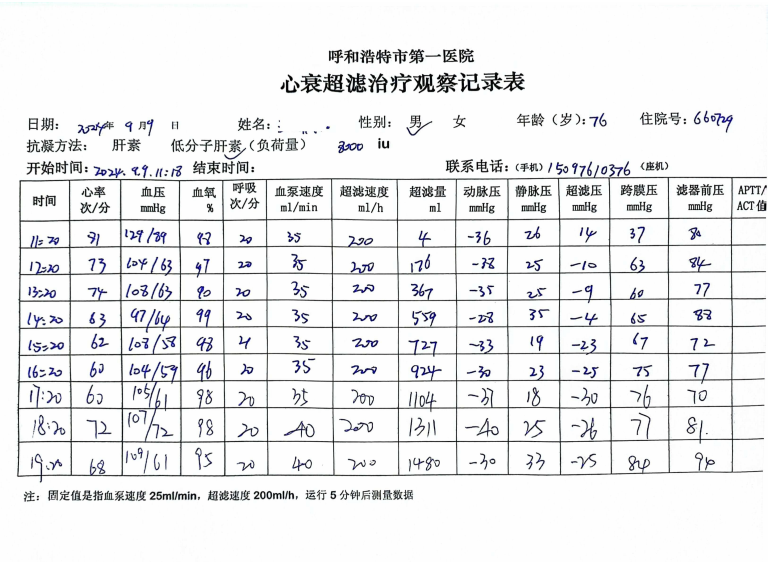 呼和浩特市第一医院
心衰超滤治疗观察记录表
日期: 2024年 9月9 日 姓名: 性别: 男✓ 女 年龄(岁):76 住院号:660729
抗凝方法: 肝素 低分子肝素✓(负荷量) 8000 iu
开始时间:2024.9.9.11:18 结束时间: 联系电话:(手机)15097610376(座机)
时间 心率 次/分 血压 mmHg 血氧 % 呼吸 次/分 血泵速度 ml/min 超滤速度 ml/h 超滤量 ml 动脉压 mmHg 静脉压 mmHg 超滤压 mmHg 跨膜压 mmHg 滤器前压 mmHg APTT/ ACT值
11:20 81 129/89 98 20 35 200 4 -36 26 14 37 80
12:20 73 104/63 97 20 35 200 176 -38 25 -10 63 84
13:20 74 108/63 90 20 35 200 367 -35 25 -9 60 77
14:20 63 97/64 99 20 35 200 559 -28 35 -4 65 88
15:20 62 108/58 98 21 35 200 727 -33 19 -23 67 72
16:20 60 104/59 96 20 35 200 924 -30 23 -25 75 77
17:20 60 105/61 98 20 35 200 1104 -37 18 -30 76 70
18:20 72 107/72 98 20 40 200 1311 -40 25 -26 77 81.
19:20 68 109/61 95 20 40 200 1480 -30 33 -25 84 94
注: 固定值是指血泵速度 25ml/min, 超滤速度 200ml/h, 运行 5 分钟后测量数据